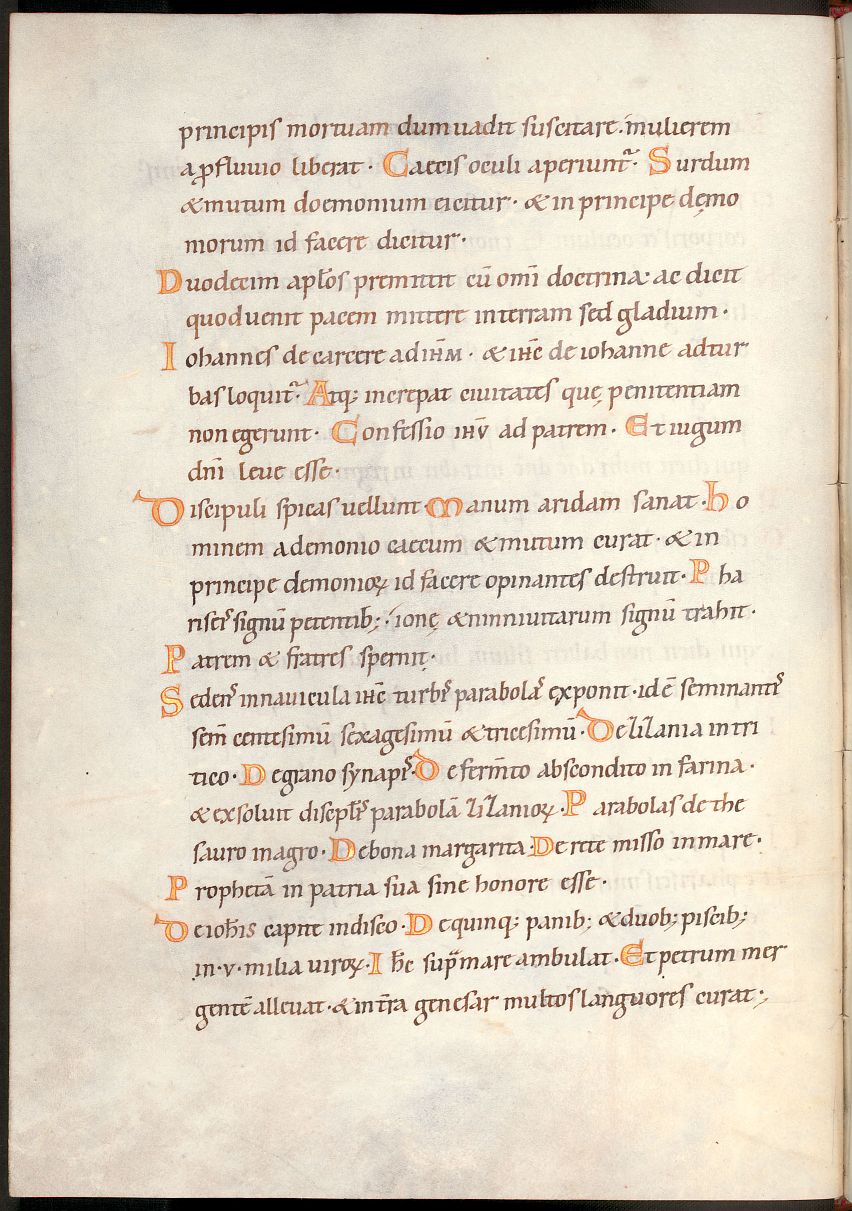 principis mortuam dum uadit suscitare. mulierem
a ꝓfluuio liberat · Caecis oculi aperiunt᷑· Surdum
& mutum doemonium eicitur · & in principe dęmo
niorum id facere dicitur ·
Duodecim apl̄os premittit cū omī doctrina · ac dicit
quod uenit pacem mittere in terram sed gladium ·
Iohannes de carcere ad iħm · & iħc de iohanne ad tur
bas loquit᷑· Atq; increpat ciuitates quę penitentiam
non egerunt · Confessio iħu ad patrem · Et iugum
dn̄i leue esse ·
Discipuli spicas uellunt · Manum aridam sanat · Ho
minem a demonio caecum & mutum curat · & in
principe demonioꝝ id facere opinantes destruit · Pha
riseis signū petentib; · ionę & niniuitarum signū trahit ·
Patrem & fratres spernit ·
Sedens in nauicula iħc turbis parabolas exponit · id ē seminantis
sem̄ centesimū sexagesimū & tricesimū · De zizania in tri
tico · De grano synapis · De ferm̄to abscondito in farina ·
& exsoluit discipl̄is parabolā zizanioꝝ · Parabolas de the
sauro in agro · De bona margarita · De rete misso in mare ·
Prophetā in patria sua sine honore esse ·
De ioħis capite in disco · De quinq; panib; & duob; piscib;
in · v · milia uiroꝝ · Iħc sup̄ mare ambulat · Et petrum mer
gentē alleuat · & in t̄ra genesar multos languores curat ;